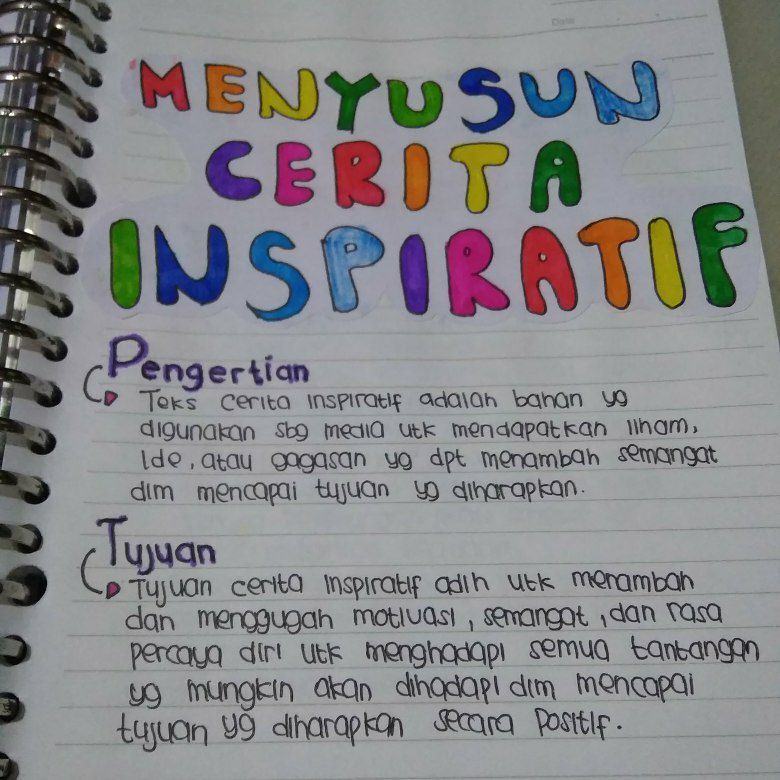 Date
MENYUSUN
CERITA
INSPIRATIF
Pengertian
Teks cerita inspiratif adalah bahan yg
digunakan sbg media utk mendapatkan ilham,
Ide, atau gagasan yg dpt menambah semangat
dlm mencapai tujuan yg diharapkan.
Tujuan
Tujuan cerita inspiratif adlh utk menambah
dan menggugah motivasi, semangat, dan rasa
percaya diri utk menghadapi semua tantangan
yg mungkin akan dihadapi dlm mencapai
tujuan yg diharapkan secara positif.